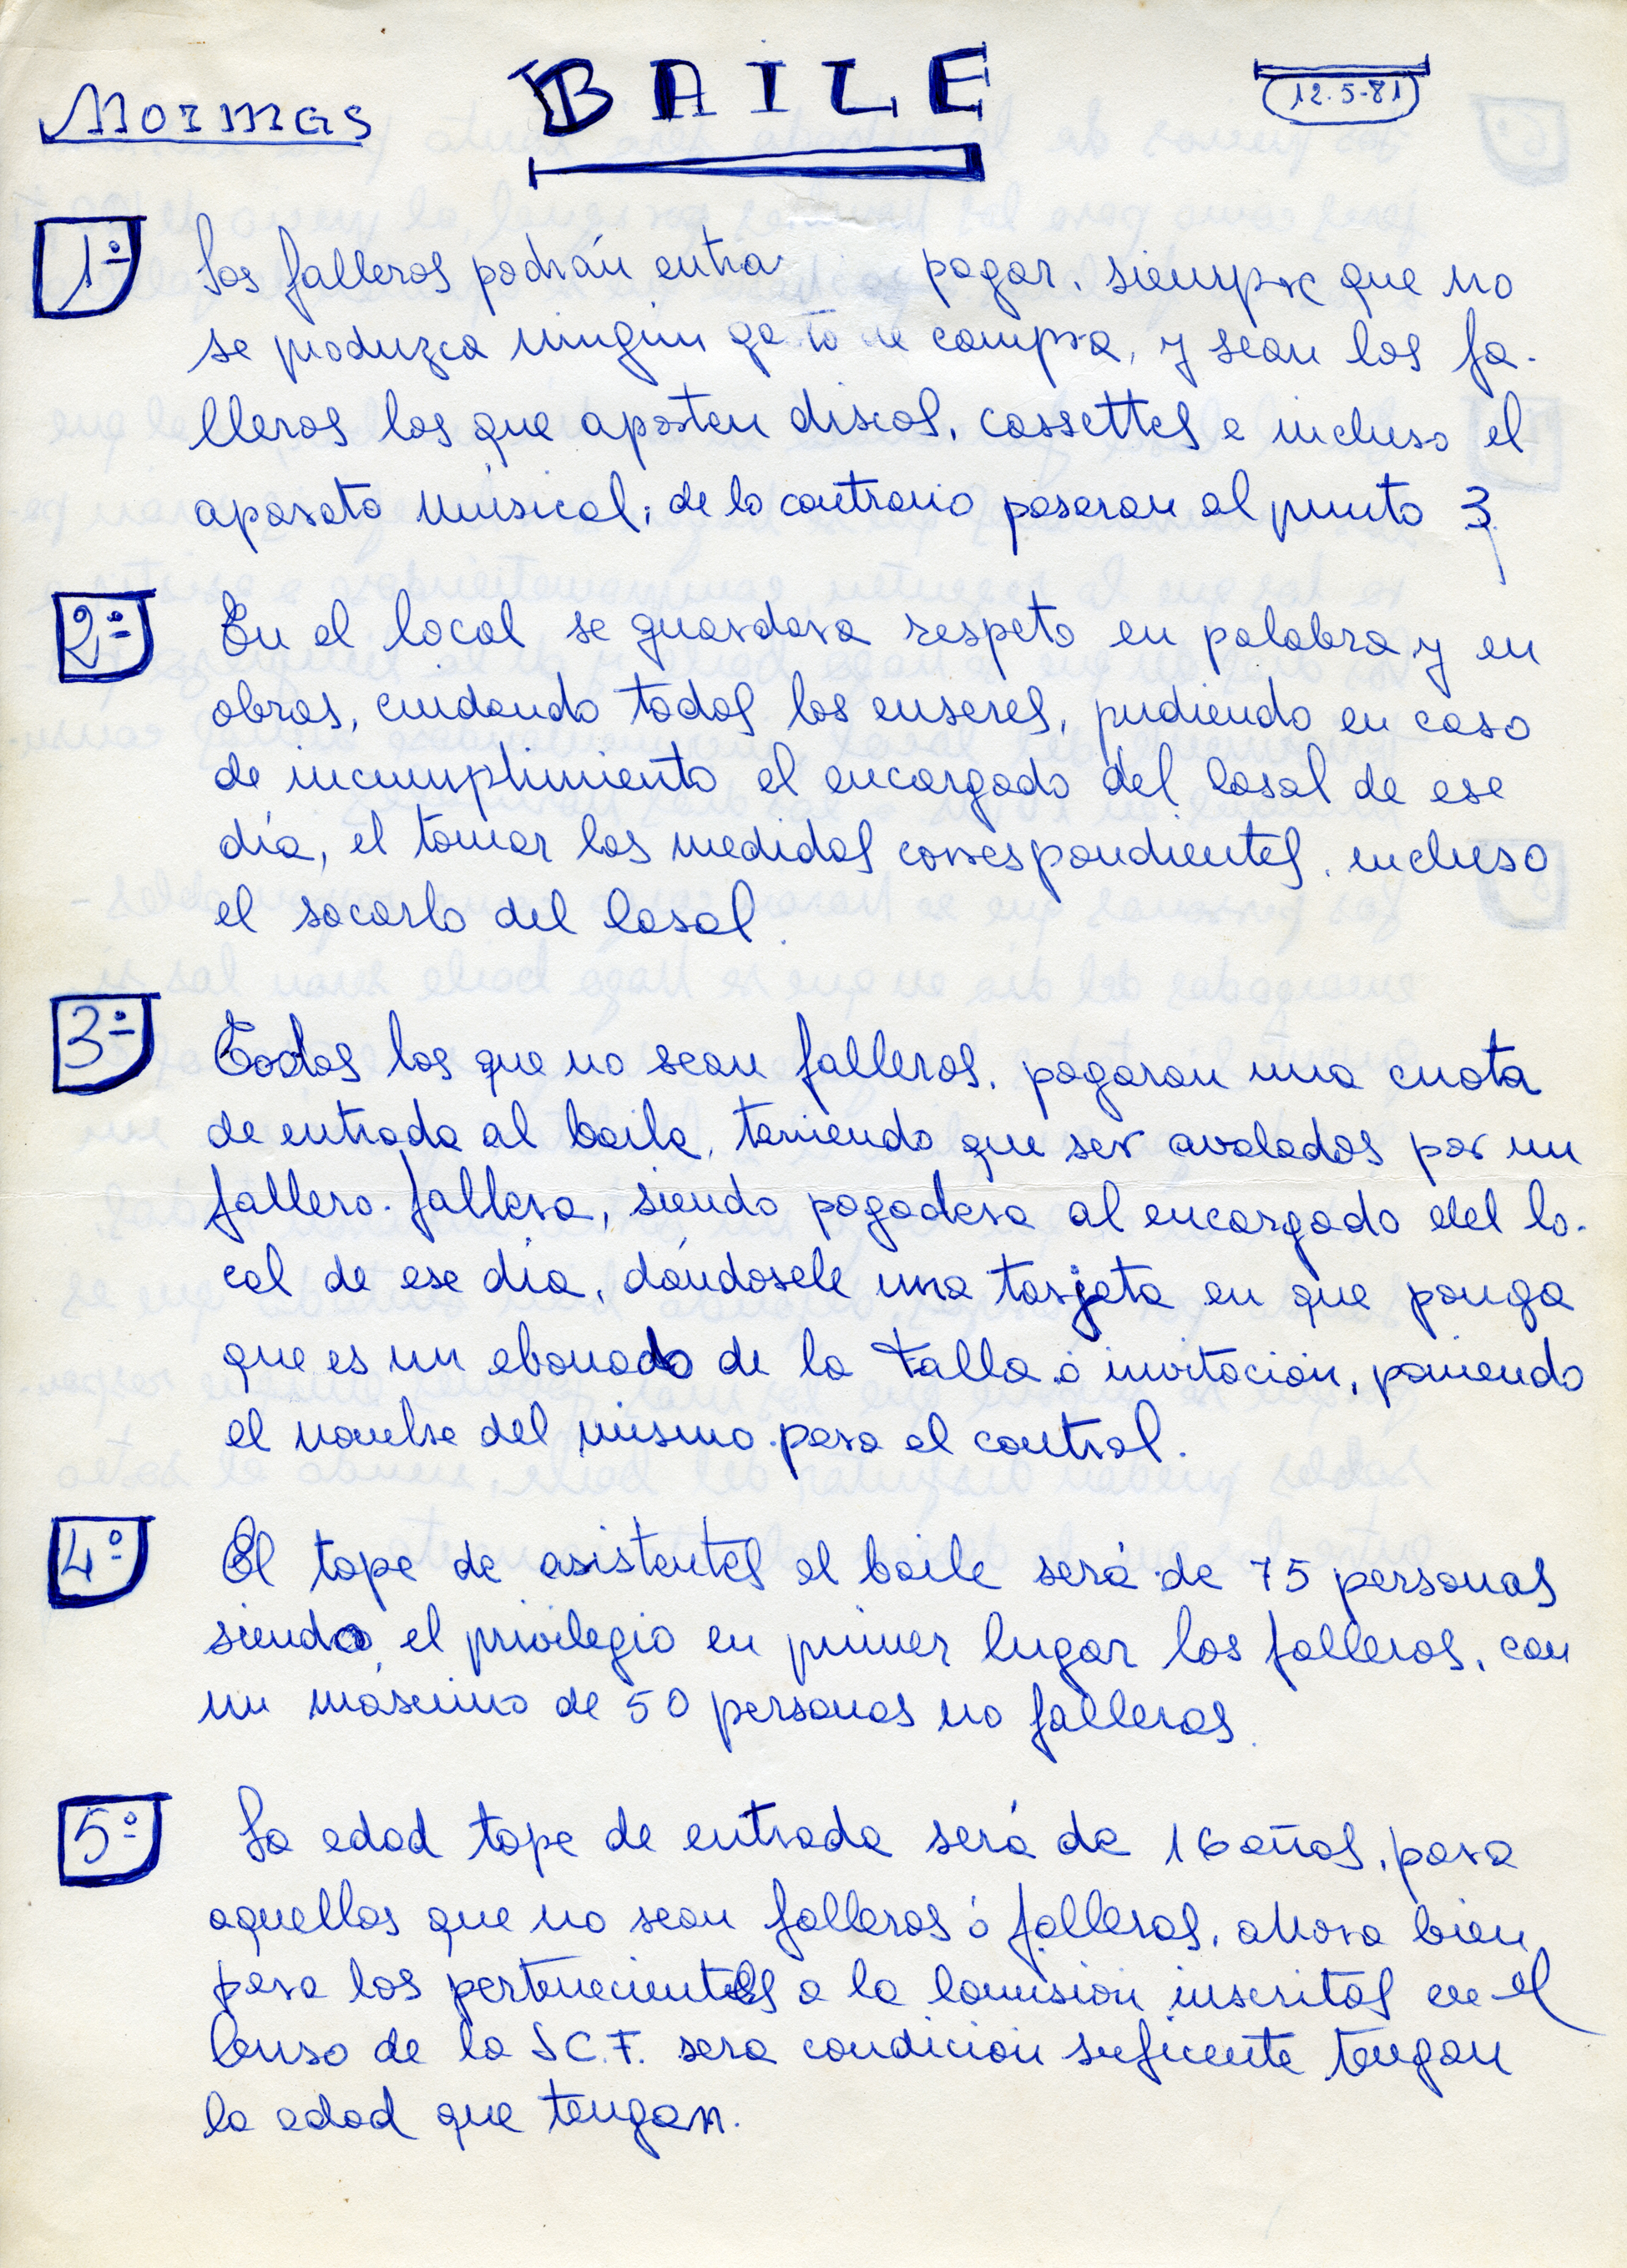 Normas BAILE 12-5-81
1º Los falleros podrán entrar pagar, siempre que no
se produzca ningún gasto de compra, y sean los fa-
lleros los que aporten discos, cassettes e incluso el
aparato músical; de lo contrario pasaran al punto 3
2º En el local se guardara respeto en palabra y en
obras, cuidando todos los enseres, pudiendo en caso
de incumplimiento el encargado del casal de ese
día, el tomar las medidas correspondientes, incluso
el sacarlo del casal.
3º Todos los que no sean falleros, pagaran una cuota
de entrada al baile, teniendo que ser avalados por un
fallero-fallera, siendo pagadera al encargado del lo-
cal de ese día, dándosele una tarjeta en que ponga
que es un abonado de la falla ó invitación, poniendo
el nombre del mismo para el control.
4º El tope de asistentes al baile será de 75 personas
siendo el privilegio en primer lugar los falleros, con
un máximo de 50 personas no falleros.
5º La edad tope de entrada será de 16 años, para
aquellos que no sean falleros ó falleras, ahora bien
para los pertenecientes a la Comisión inscritos en el
Censo de la J.C.F. sera condición suficente tengan
la edad que tengan.